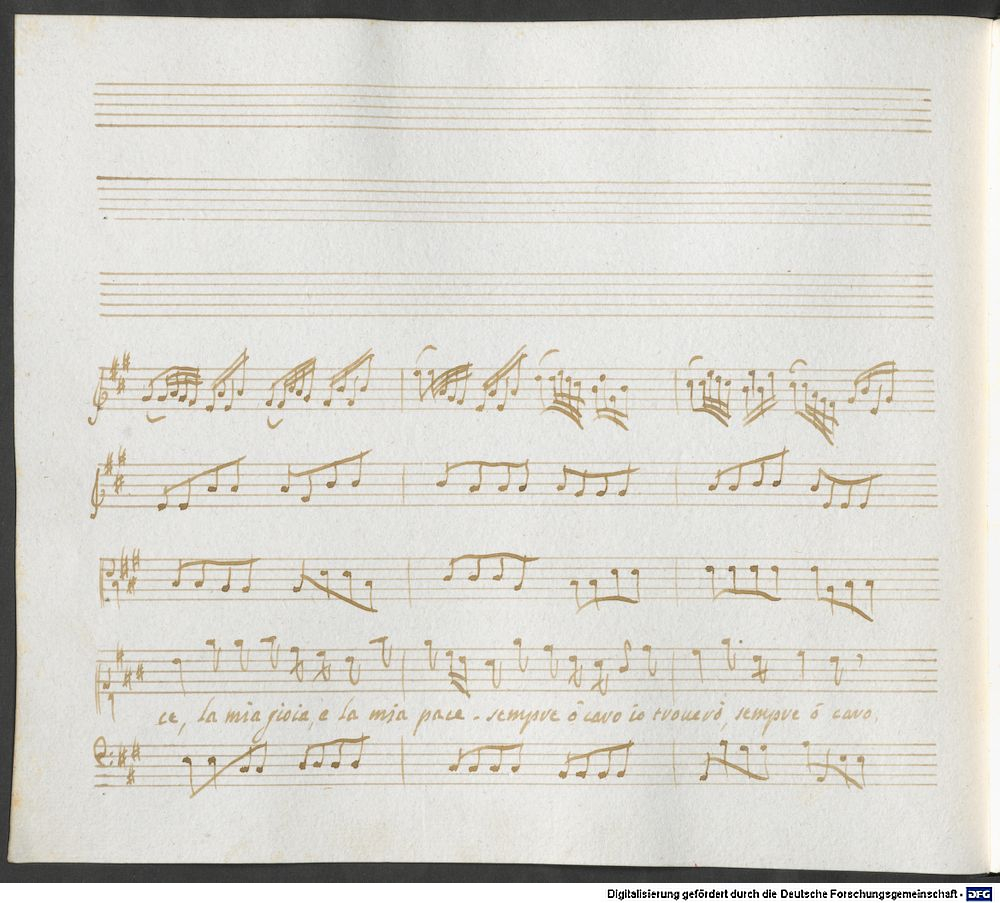 ce, la mia gioia, e la mia pace - sempre ò caro io troverò, sempre ò caro,
Digitalisierung gefördert durch die Deutsche Forschungsgemeinschaft - DFG